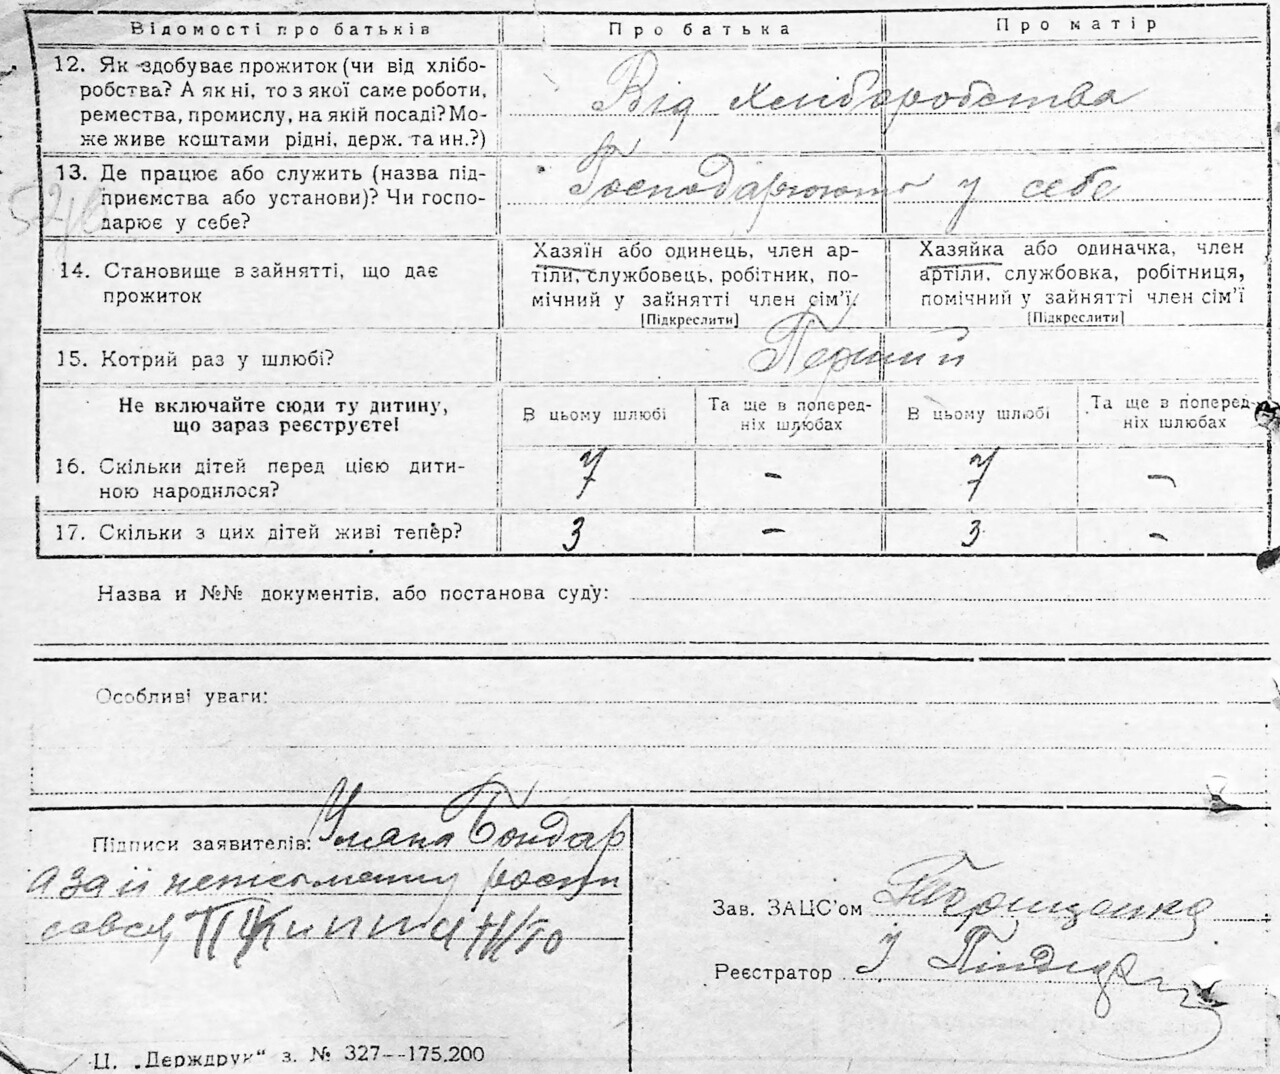 Відомості про батьків
Про батька
Про матір
12. Як здобуває прожиток (чи від хлібо-
робства? А як ні, то з якої саме роботи,
ремества, промислу, на якій посаді? Мо-
же живе коштами рідні, держ. та ин.?)
Від хліборобства
13. Де працює або служить (назва під-
приємства або установи)? Чи госпо-
дарює у себе?
Господарюють у себе
14. Становище в зайнятті, що дає
прожиток
Хазяїн або одинець, член ар-
тіли, службовець, робітник, по-
мічний у зайнятті член сім'ї
[Підкреслити]
Хазяйка або одиначка, член
артіли, службовка, робітниця,
помічний у зайнятті член сім'ї
[Підкреслити]
15. Котрий раз у шлюбі?
Перший
Не включайте сюди ту дитину,
що зараз реєструєте!
В цьому шлюбі
Та ще в поперед-
ніх шлюбах
В цьому шлюбі
Та ще в поперед-
ніх шлюбах
16. Скільки дітей перед цією дити-
ною народилося?
7 – 7 –
17. Скільки з цих дітей живі тепер?
3 – 3 –
Назва и №№ документів, або постанова суду:
Особливі уваги:
Підписи заявителів: Уляна Бондар
а за її неписьменну роспи
савсь
Зав. ЗАЦС'ом
Реєстратор І
Ц. „Держдрук“ з. № 327--175.200